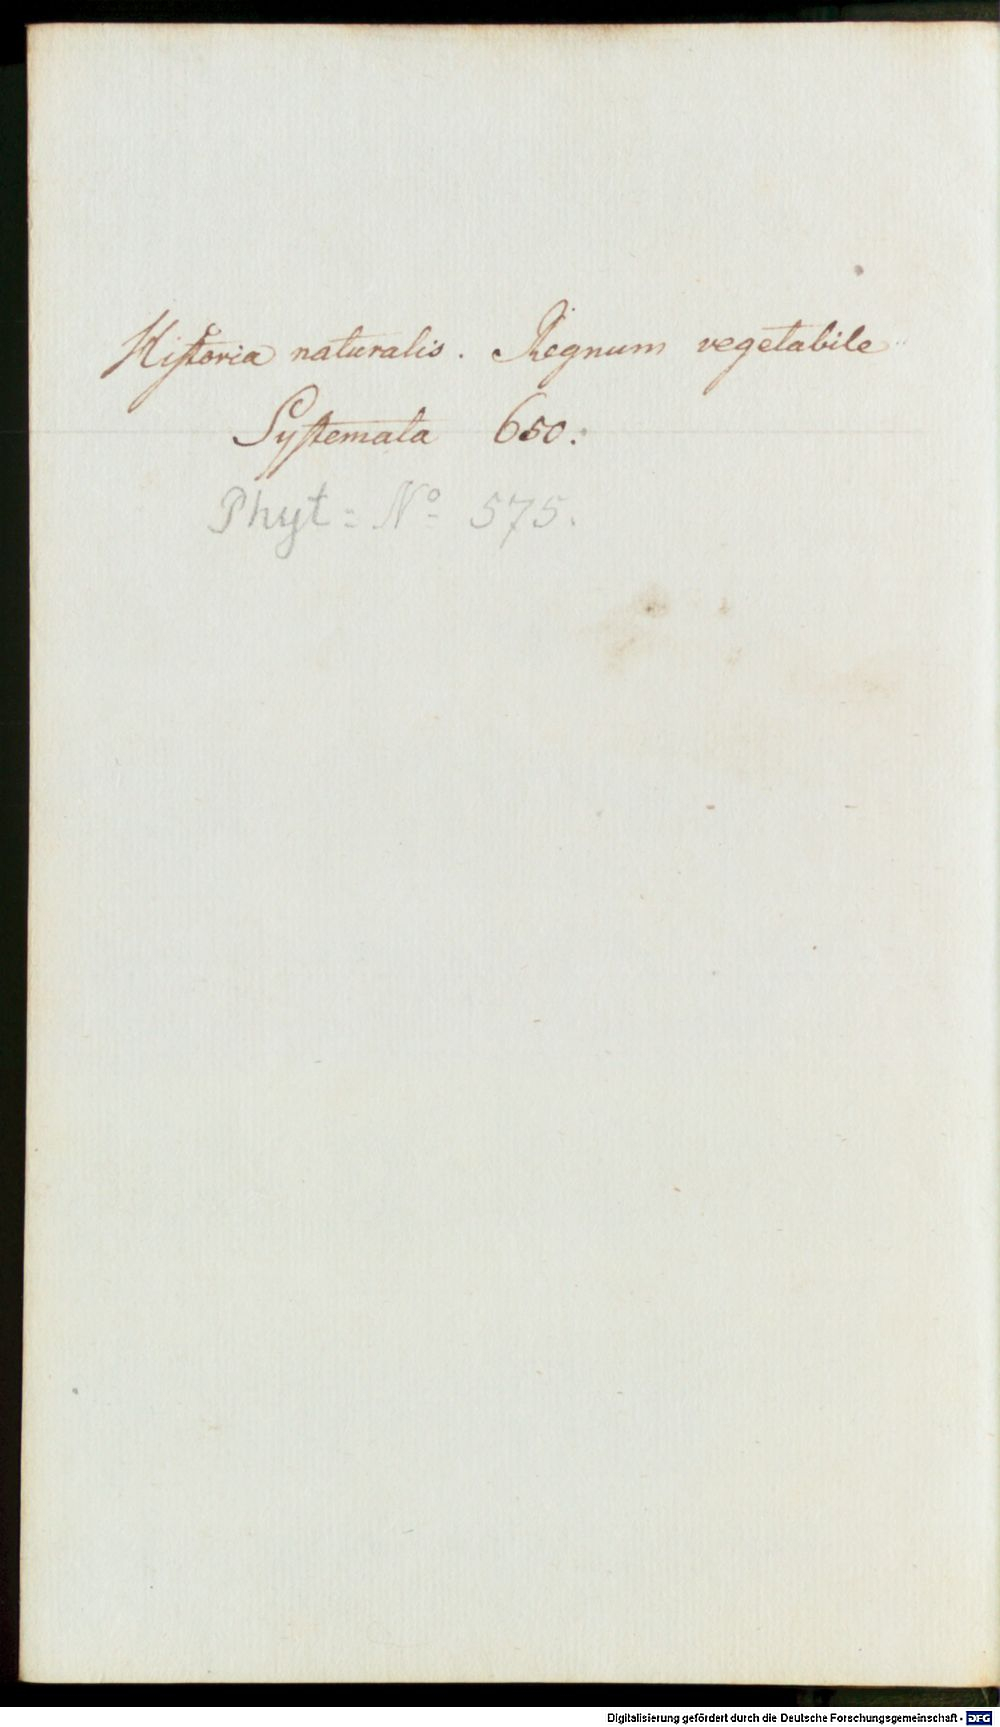 Hiſtoria naturalis. Regnum vegetabile
Syſtemata 650.
Phyt= No 575.
Digitalisierung gefördert durch die Deutsche Forschungsgemeinschaft - DFG